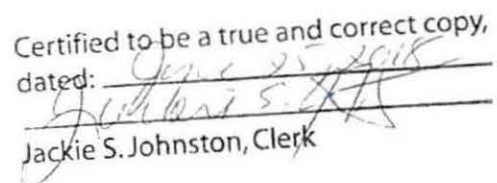 Certified to be a true and correct copy,
dated: June 25, 2018
Jackie S. Johnston, Clerk